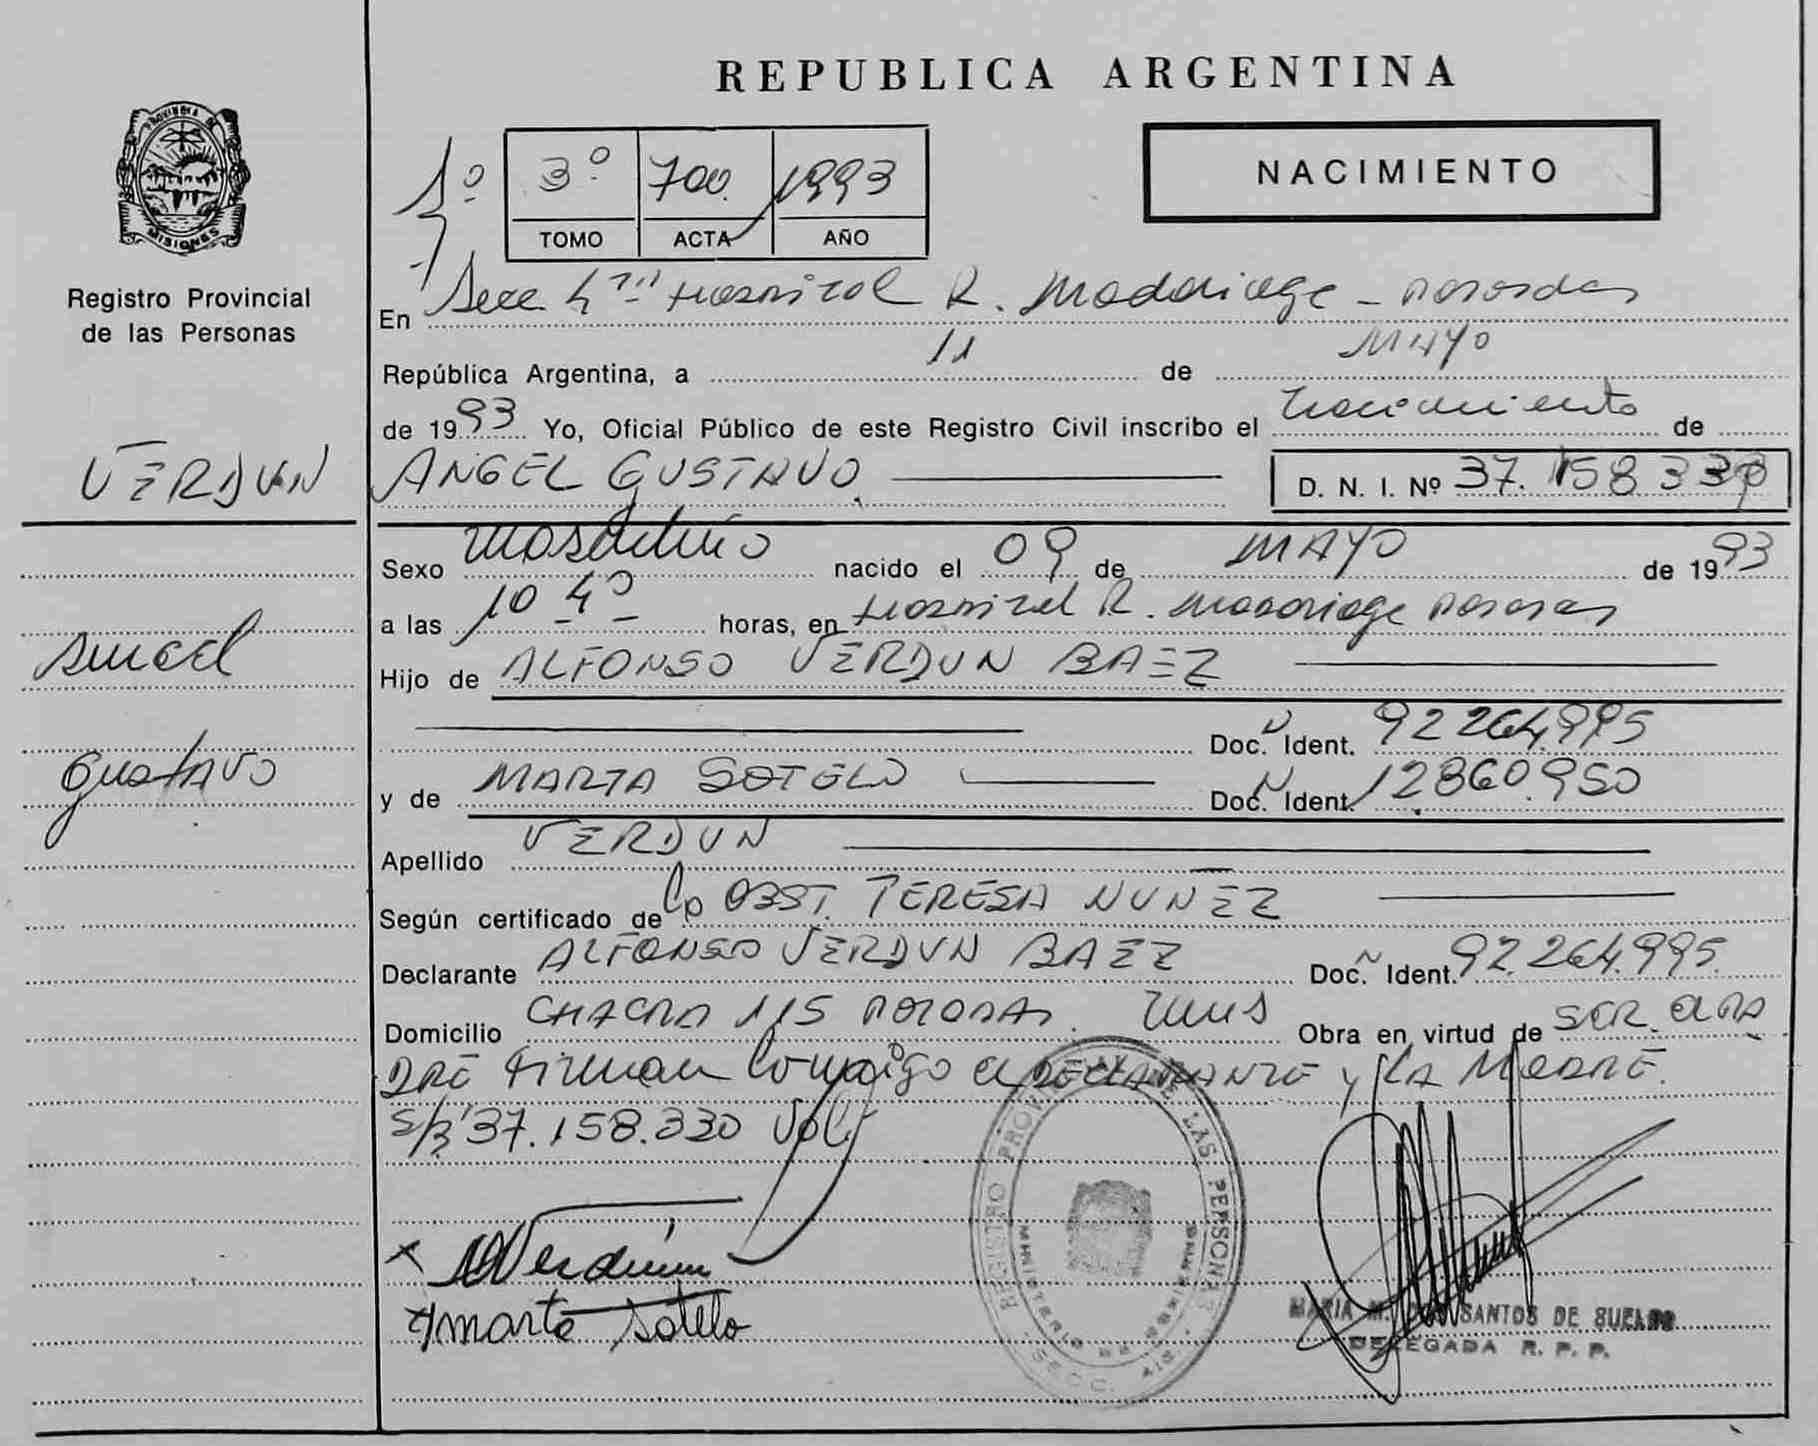 PROVINCIA DE
MISIONES
Registro Provincial
de las Personas
VERDUN
Angel
Gustavo
REPUBLICA ARGENTINA
1º 3º 700 1993
TOMO ACTA AÑO
NACIMIENTO
En Secc 4ta Hospital R. Madariaga - Posadas
República Argentina, a 11 de MAYO
de 1993 Yo, Oficial Público de este Registro Civil inscribo el nacimiento de
ANGEL GUSTAVO D. N. I. Nº 37.158.330
Sexo masculino nacido el 09 de MAYO de 1993
a las 10 40 horas, en Hospital R. Madariaga Posadas
Hijo de ALFONSO VERDUN BAEZ
Doc. Ident. 92.264.995
y de MARTA SOTELO Doc. Ident. 12.860.950
Apellido VERDUN
Según certificado de la OBST. TERESA NUNEZ
Declarante ALFONSO VERDUN BAEZ Doc. Ident. 92.264.995
Domicilio CHACRA 115 POSADAS. Mnes Obra en virtud de SER EL PA
DRE Firman Conmigo el DECLARANTE y LA MADRE.
S/B 37.158.330 Vale
x AVerdun
x Marta Sotelo
REGISTRO PROVINCIAL DE LAS PERSONAS
MINISTERIO DE GOBIERNO
SECC. 4ta
MARIA M. DOS SANTOS DE SUELDO
DELEGADA R. P. P.